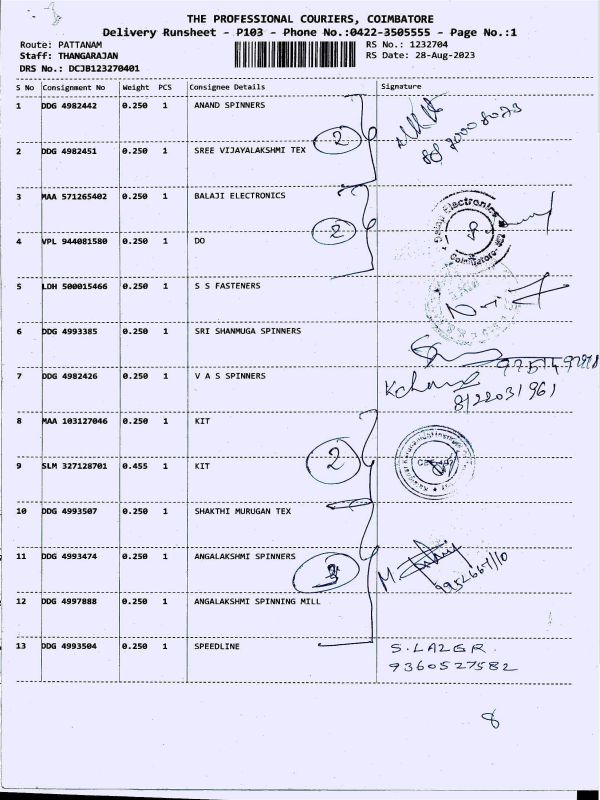 THE PROFESSIONAL COURIERS, COIMBATORE
Delivery Runsheet - P103 - Phone No.:0422-3505555 - Page No.:1
Route: PATTANAM RS No.: 1232704
Staff: THANGARAJAN RS Date: 28-Aug-2023
DRS No.: DCJB123270401
S No Consignment No Weight PCS Consignee Details Signature
1 DDG 4982442 0.250 1 ANAND SPINNERS
2
2 DDG 4982451 0.250 1 SREE VIJAYALAKSHMI TEX
3 MAA 571265402 0.250 1 BALAJI ELECTRONICS
2
4 VPL 944081580 0.250 1 DO
5 LDH 500015466 0.250 1 S S FASTENERS
6 DDG 4993385 0.250 1 SRI SHANMUGA SPINNERS
7 DDG 4982426 0.250 1 V A S SPINNERS
8122031961
8 MAA 103127046 0.250 1 KIT
2
9 SLM 327128701 0.455 1 KIT
10 DDG 4993507 0.250 1 SHAKTHI MURUGAN TEX
11 DDG 4993474 0.250 1 ANGALAKSHMI SPINNERS
3
12 DDG 4997888 0.250 1 ANGALAKSHMI SPINNING MILL
13 DDG 4993504 0.250 1 SPEEDLINE S. LAZER.
9360527582
8